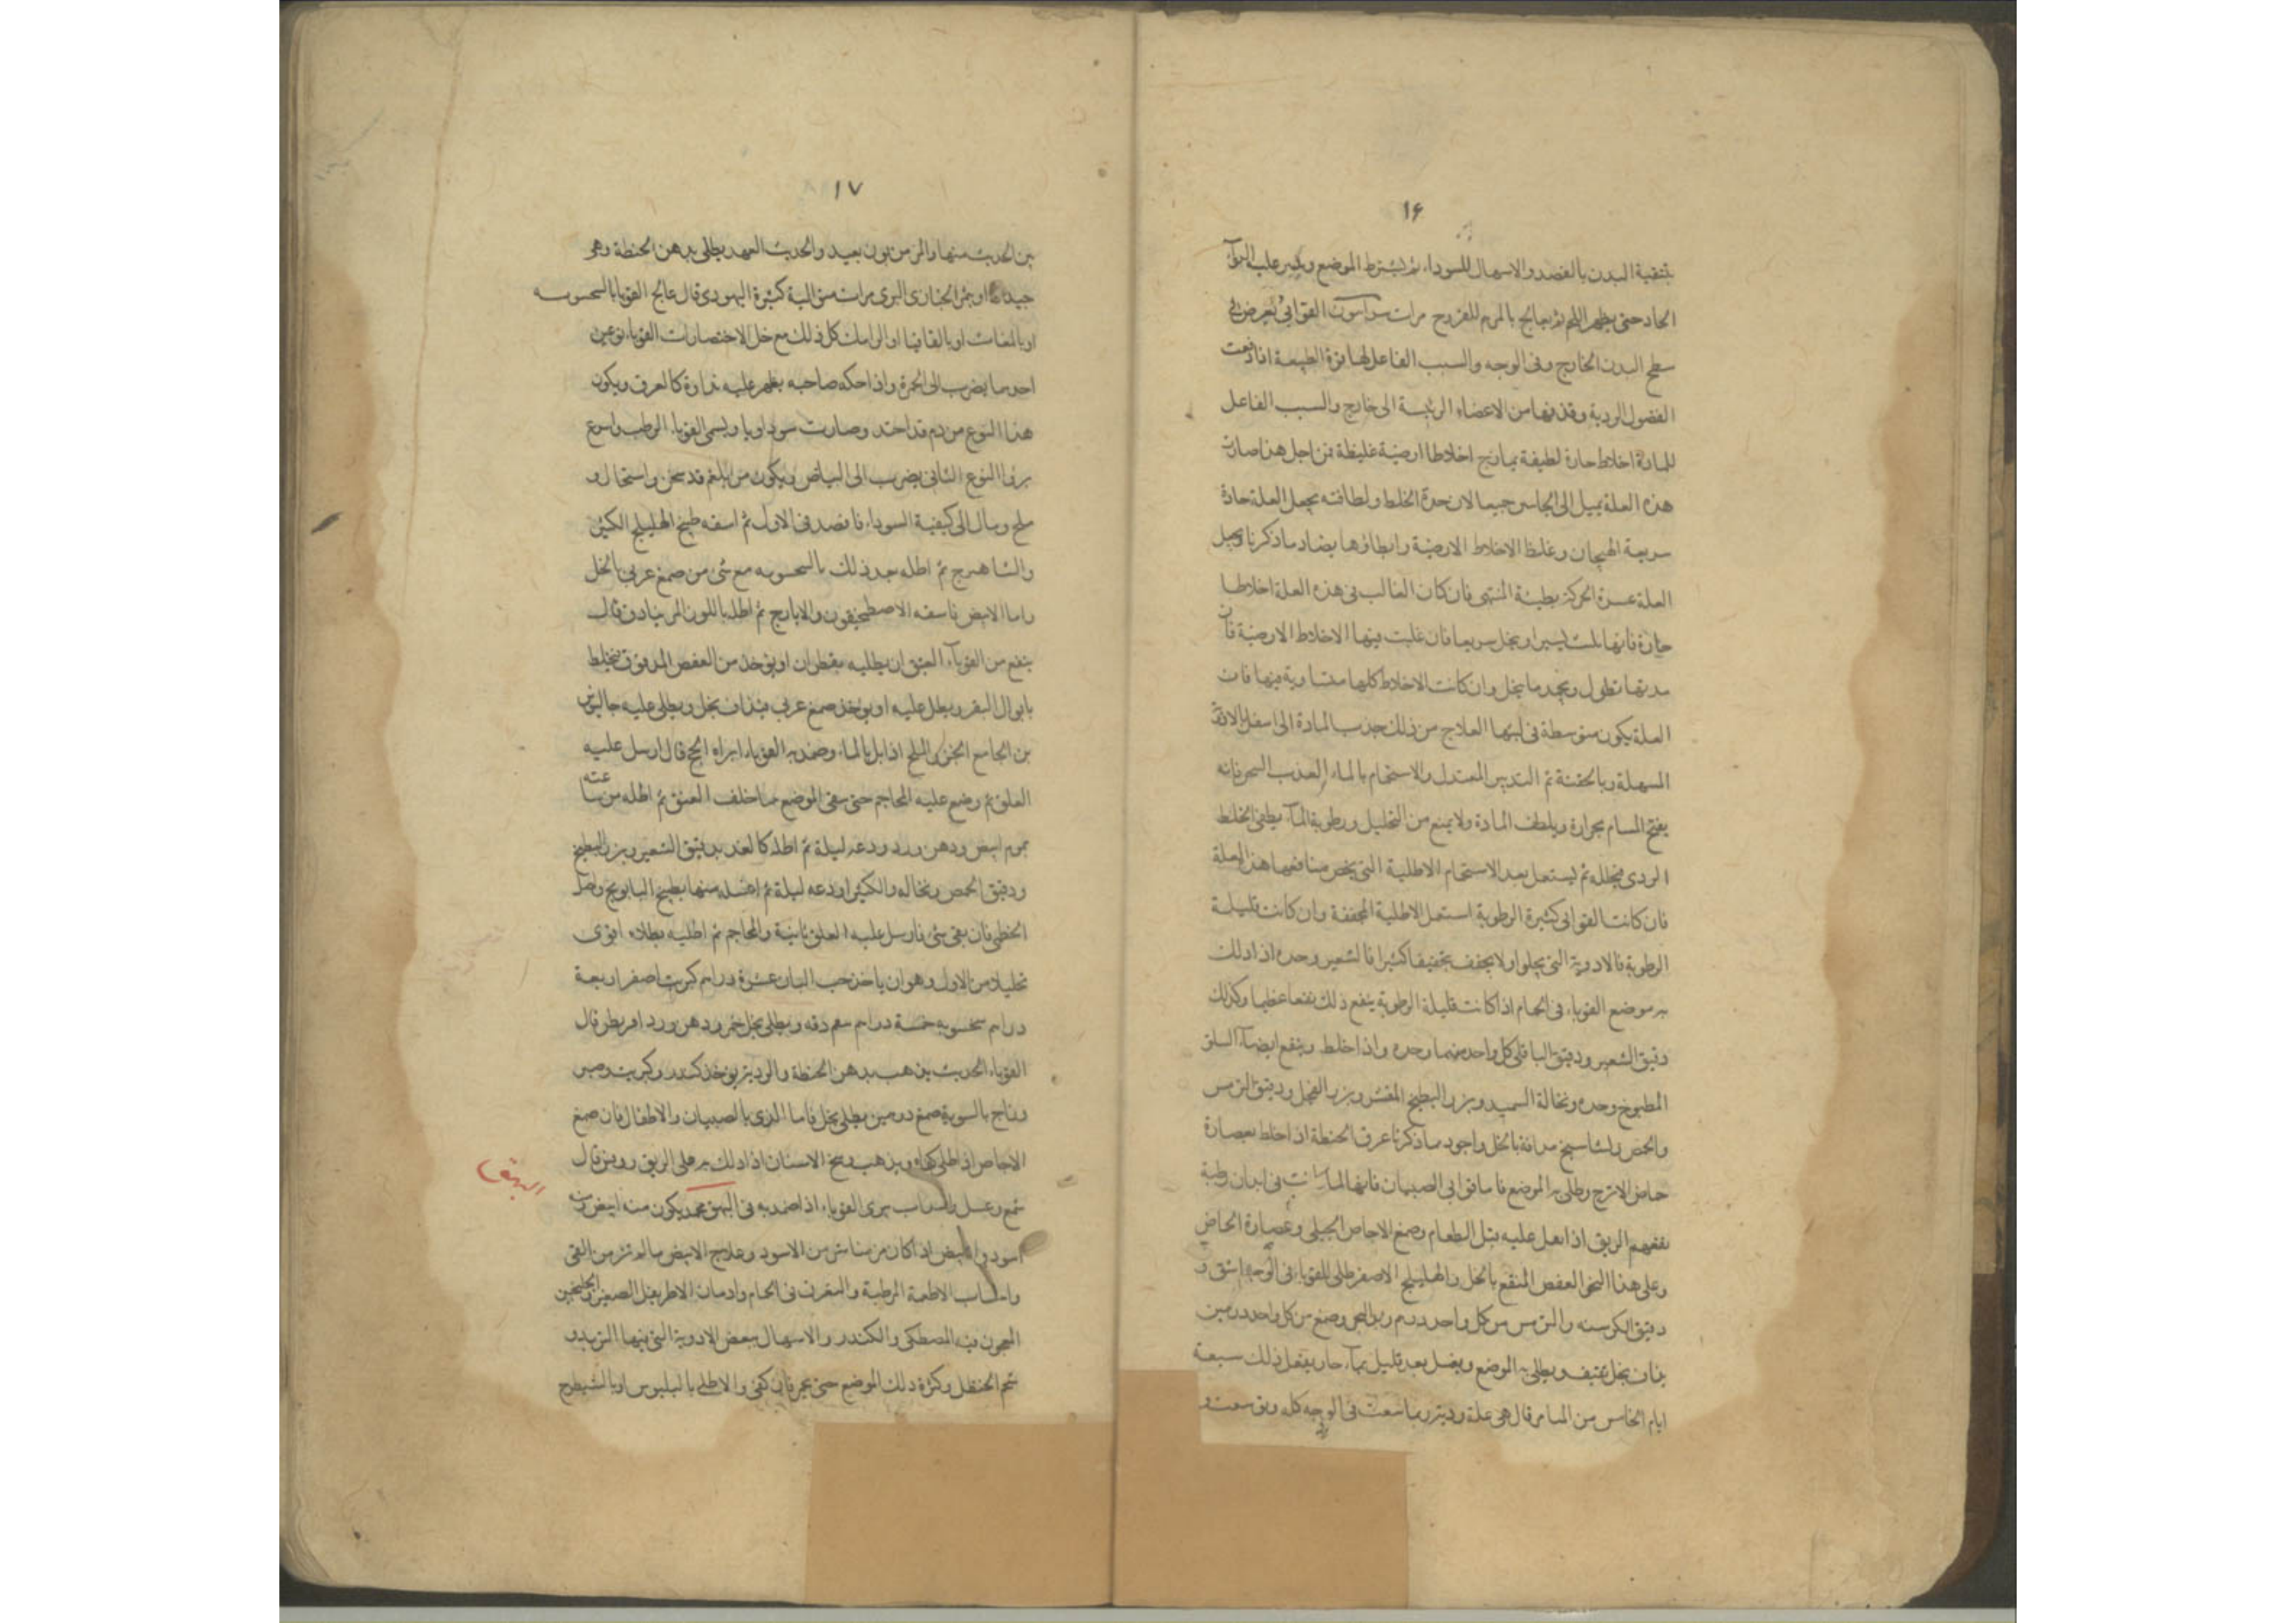 ١۶
بتنقية البدن بالفصد والاسهال للسوداء ثم ليشترط الموضع وعلیه الدواء
الحاد حتى يظهر اللحم ثم يعالج بالمرهم للقروح مرات القوابي تعرض في
سطح البدن الخارج وفي الوجه والسبب الفاعل لها قوة الطبيعة اذا دفعت
الفضول الردية وقذفها من الاعضاء الرئيسة الى خارج والسبب الفاعل
للمادة اخلاط حارة لطيفة يمازج اخلاطا ارضية غليظة فمن اجل هذا صارت
هذه العلة يميل الى الجانبين جميعا لان حدة الخلط ولطافته يجعل العلة حادة
سريعة الهيجان وغلظ الاخلاط الارضية وابطاؤها يضاد ما ذكرنا ويجعل
العلة عسرة الحركة بطيئة المنتهى فان كان الغالب في هذه العلة اخلاطا
حارة فانها تلبث يسيرا وينحل سريعا فان غلبت فيها الاخلاط الارضية فان
مدتها تطول وبجهد ما ينحل وان كانت الاخلاط كلها متساوية فيها فان
العلة يكون متوسطة في لبثها العلاج من ذلك جذب المادة الى اسفل بالادوية
المسهلة وبالحقنة ثم التدبير المعتدل والاستحمام بالماء العذب السخن فانه
يفتح المسام بحرارة ويلطف المادة ولا يمنع من التحليل ورطوبة الماء يطفئ الخلط
الردي فيحلله ثم ليستعمل بعد الاستحمام الاطلية التي يخص منافعها هذه العلة
فان كانت القوابي كثيرة الرطوبة استعمل الاطلية المجففة وان كانت قليلة
الرطوبة فالادوية التي يجلوا ولا يجفف تجفيفا كثيرا فالشعير وحده اذا دلك
به موضع القوباء في الحمام اذا كانت قليلة الرطوبة ينفع ذلك نفعا عظيما وكذلك
دقيق الشعير ودقيق الباقلي كل واحد منهما وحده واذا خلط وينفع ايضا السلق
المطبوخ وحده ونخالة السميد وبزر البطيخ المقشر وبزر الفجل ودقيق الترمس
والحمص والشاسيج مدافة بالخل واجود ما ذكرنا عرق الحنطة اذا خلط بعصارة
حماض الاترج وطلى به الموضع فاما قوابي الصبيان فانها لما كانت في ابدان رطبة
نفعهم الريق اذا جعل عليه قبل الطعام وصمغ الاجاص الجبلي وعصارة الحماض
وعلى هذا النحو العفص المنقع بالخل والهليلج الاصفر طلى للقوباء في الوجه اشق و
دقيق الكرسنه والترمس من كل واحد درهم وصمغ من كل واحد درهمين
يذاف بخل ثقيف ويطلى به الموضع ويغسل بعد قليل بماء حار يفعل ذلك سبعة
ايام الخامس من الميامر قال هي علة رديئة ربما سعت في الوجه كله
١٧
بين الحديث منها والمزمن بون بعيد والحديث العهد يطلى بدهن الحنطة وهو
جيد لها او بمثر الخبازى البري مرات متوالية كثيرة اليهودي قال عالج القوبا بالسحسويه
او بالمغاث او بالقاقيا او الرامك كل ذلك مع خل الاختصارات القوباء نوعين
احدهما يضرب الى الحمرة واذا حكه صاحبه يظهر عليه نداوة كالعرق ويكون
هذا النوع من دم قد احتد وصارت سوداويا ويسمى القوباء الرطب واسرع
بروا النوع الثاني يضرب الى البياض ويكون من بلغم قد سخن واستحال و
ملح ومال الى كيفية السوداء فافصد في الاول ثم اسقه طبيخ الهليلج الكبير
والشاهترج ثم اطله بعد ذلك بالسحسويه مع شئ من صمغ عربي بالخل
واما الابيض فاسقه الاصطمخيقون والايارج ثم اطله باللوز المر بنادق قال
ينفع من القوباء العتيق ان يطليه بقطران او يوخذ من العفص المدقوق فيخلط
بابوال البقر ويطلى عليه او يوخذ صمغ عربي فيذاف بخل ويطلى عليه جالينوس
من الجامع الخبز والملح اذا بل بالماء وضمد به القوباء ابراه الحج قال ارسل عليه
العلق ثم وضع عليه المحاجم حتى سقى الموضع ما خلف العنق ثم اطله من ساعته
بموم ابيض ودهن ورد ودعه ليلة ثم اطله كالغد بدقيق الشعير وبزر البطيخ
ودقيق الحمص ونخاله والكثيرا ودعه ليلة ثم اغسله منها بطبيخ البابونج واصل
الخطمي فان بقى شئ فارسل عليه العلق ثانية والمحاجم ثم اطليه بطلاء اقوى
تحليلا من الاول وهو ان ياخذ حب البان عشرة دراهم كبريت اصفر اربعة
دراهم سحسويه خمسة دراهم ينعم دقه ويطلى بخل خمر ودهن ورد اقريطن قال
القوباء الحديث يذهب بدهن الحنطة والردية يوخذ كندر وكبريت وصبر
وزاج بالسوية صمغ درهمين يطلى بخل فاما الذي بالصبيان والاطفال فان صمغ
الاجاص اذا طلى كفاه ويذهب وسخ الاسنان اذا دلك به على الريق روفس قال
شمع وعسل يبرى القوباء اذا ضمد به في البهق يكون منه ابيض ومنه
اسود والابيض اذا كان مزمنا شر من الاسود وعلاج الابيض ما لم يزمن القي
واجتناب الاطعمة المرطبة والتعرق في الحمام وادمان الاطريفل الصغير والجلنجبين
المعجون فيه المصطكى والكندر والاسهال ببعض الادوية التي فيها التربد و
شحم الحنظل وكثرة دلك الموضع حتى يحمر فان كفى والا طلى بالبلبوس او بالشيطرج
البهق